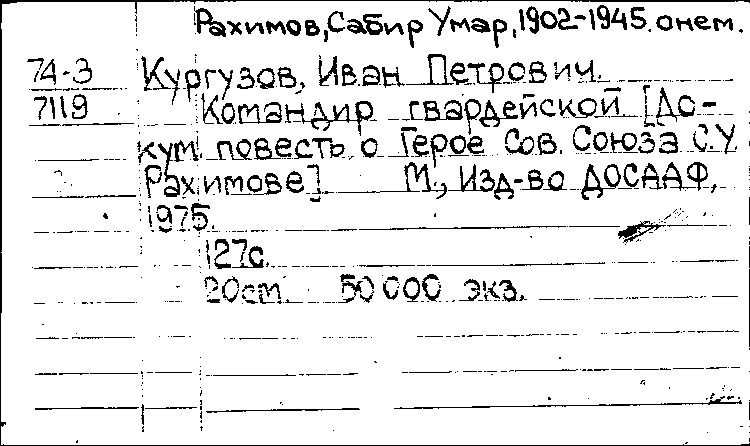 Рахимов, Сабир Умар, 1902-1945. о нем.
74-3 Кургузов, Иван Петрович.
7119 Командир гвардейской. [До-
кум. повесть о Герое Сов. Союза С.У.
Рахимове]. М., Изд-во ДОСААФ,
1975.
127с.
20см. 50 000 экз.